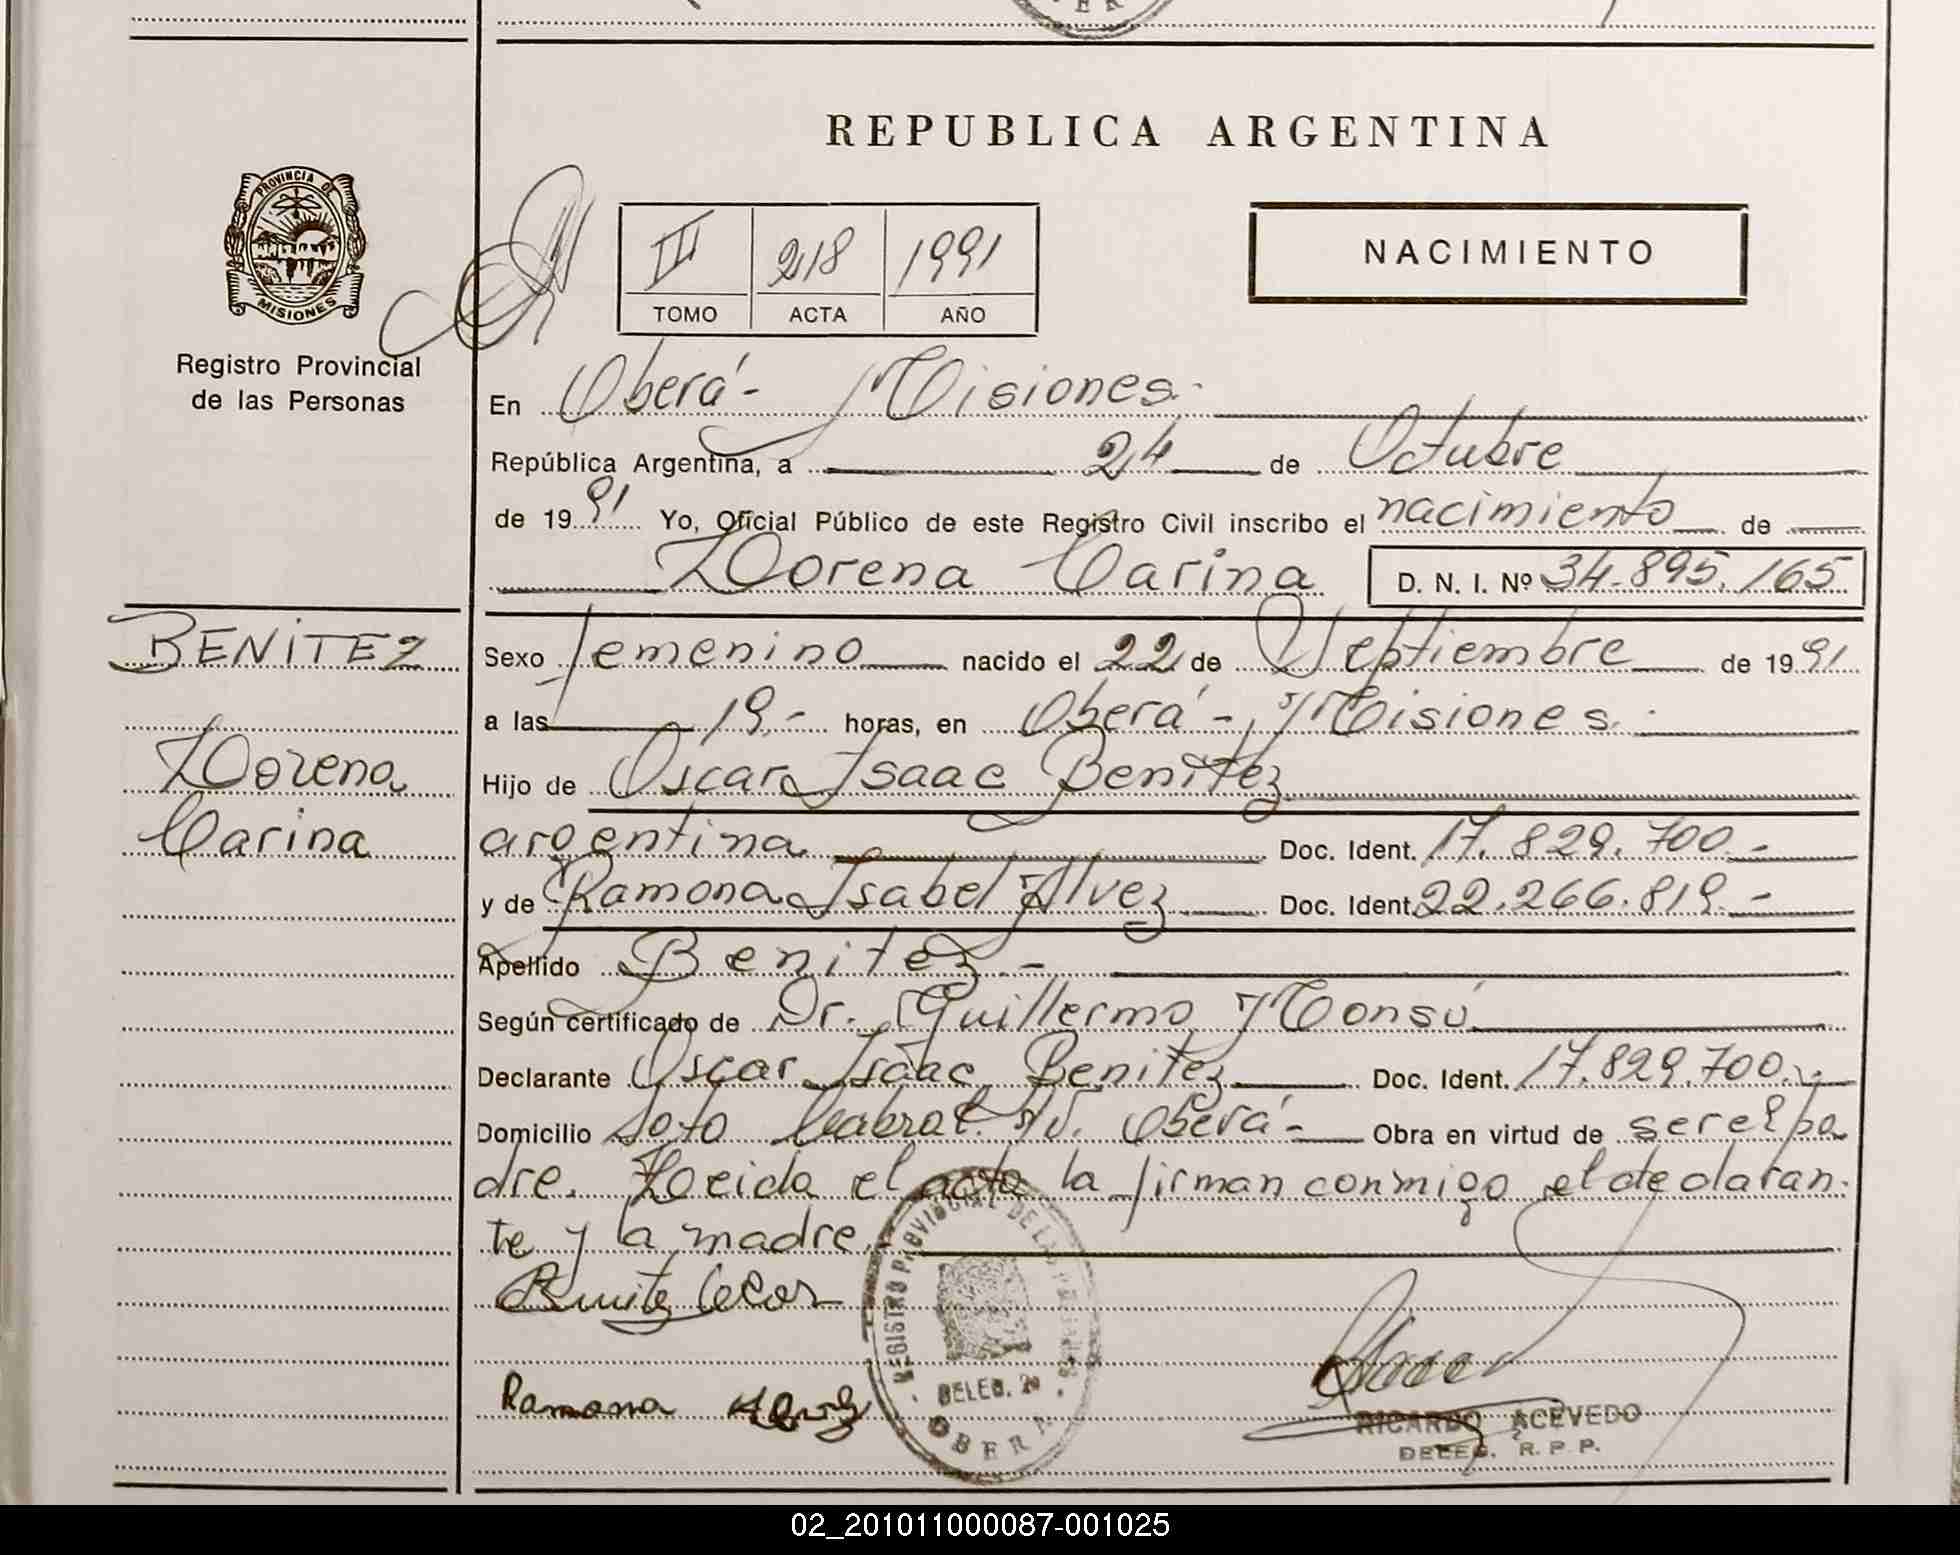 REPUBLICA ARGENTINA
PROVINCIA DE
MISIONES
Registro Provincial
de las Personas
III 218 1991
TOMO ACTA AÑO
NACIMIENTO
En Oberá - Misiones.
República Argentina, a 24 de Octubre
de 1991 Yo, Oficial Público de este Registro Civil inscribo el nacimiento de
Lorena Carina D. N. I. Nº 34.895.165
BENITEZ
Lorena
Carina
Sexo femenino nacido el 22 de Septiembre de 1991
a las 19.- horas, en Oberá - Misiones.
Hijo de Oscar Isaac Benitez
argentina Doc. Ident. 17.829.700.-
y de Ramona Isabel Alvez Doc. Ident. 22.266.819.-
Apellido Benitez.-
Según certificado de Dr. Guillermo Monsú
Declarante Oscar Isaac Benitez Doc. Ident. 17.829.700.-
Domicilio Soto Cabral. S/N. Oberá - Obra en virtud de ser el pa
dre. Leida el acta la firman conmigo el declaran-
te y la madre.
Ramona
REGISTRO PROVINCIAL DE LAS PERSONAS
DELEG. 2ª
OBERA
RICARDO ACEVEDO
DELEG. R. P. P.
02_201011000087-001025